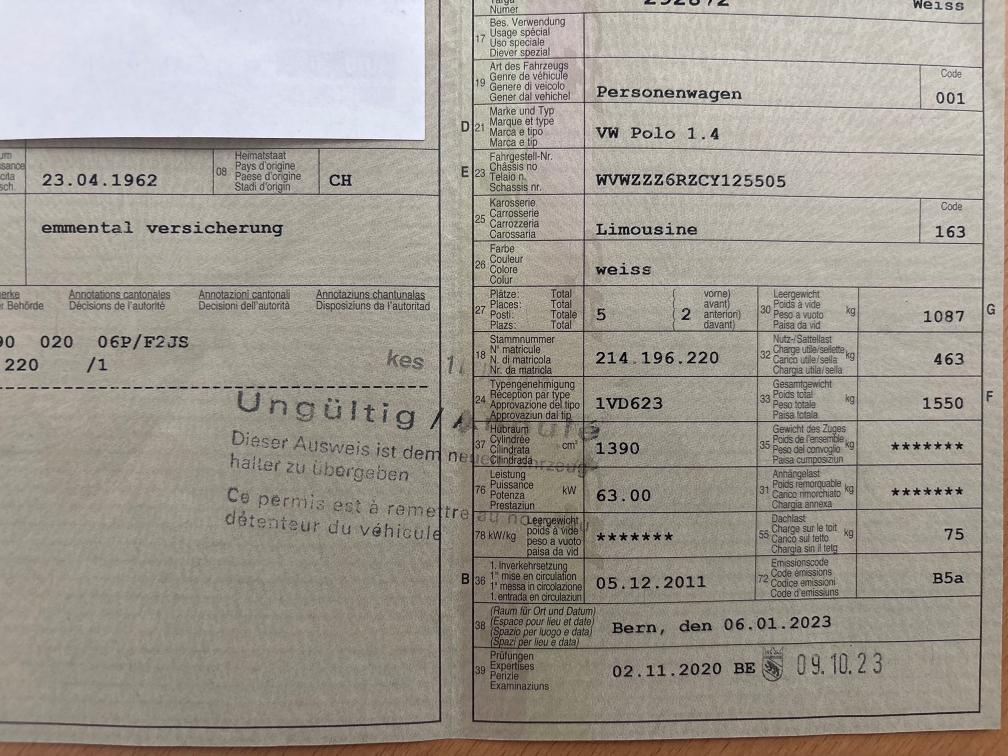 Numer
Weiss
17
Bes. Verwendung
Usage spécial
Uso speciale
Diever spezial
19
Art des Fahrzeugs
Genre de véhicule
Genere di veicolo
Gener dal vehichel
Personenwagen
Code
001
D 21
Marke und Typ
Marque et type
Marca e tipo
Marca e tip
VW Polo 1.4
23.04.1962
08
Heimatstaat
Pays d'origine
Paese d'origine
Stadi d'origin
CH
E 23
Fahrgestell-Nr.
Châssis no
Telaio n.
Schassis nr.
WVWZZZ6RZCY125505
emmental versicherung
25
Karosserie
Carrosserie
Carrozzeria
Carossaria
Limousine
Code
163
26
Farbe
Couleur
Colore
Colur
weiss
Behörde
Annotations cantonales
Décisions de l'autorité
Annotazioni cantonali
Decisioni dell'autorità
Annotaziuns chantunalas
Disposiziuns da l'autoritad
27
Plätze: Total
Places: Total
Posti: Totale
Plazs: Total
5
2
vorne)
avant)
anterior)
davant)
30
Leergewicht
Poids à vide
Peso a vuoto
Paisa da vid
kg
1087
G
020 06P/F2JS
220 /1
kes
18
Stammnummer
N° matricule
N. di matricola
Nr. da matricla
214.196.220
32
Nutz-/Sattellast
Charge utile/sellette
Carico utile/sella
Chargia utila/sella
kg
463
24
Typengenehmigung
Réception par type
Approvazione del tipo
Approvaziun dal tip
1VD623
33
Gesamtgewicht
Poids total
Peso totale
Paisa totala
kg
1550
F
Ungültig / Annulé
Dieser Ausweis ist dem neuen Fahrzeug-
halter zu übergeben
Ce permis est à remettre au nouveau
détenteur du véhicule
37
Hubraum
Cylindrée
Cilindrata
Cilindrada
cm³
1390
35
Gewicht des Zuges
Poids de l'ensemble
Peso del convoglio
Paisa cumposiziun
kg
*******
76
Leistung
Puissance
Potenza
Prestaziun
kW
63.00
31
Anhängelast
Poids remorquable
Carico rimorchiato
Chargia annexa
kg
*******
78 kW/kg
Leergewicht
poids à vide
peso a vuoto
paisa da vid
*******
55
Dachlast
Charge sur le toit
Carico sul tetto
Chargia sin il tetg
kg
75
B 36
1. Inverkehrsetzung
1re mise en circulation
1a messa in circolazione
1. entrada en circulaziun
05.12.2011
72
Emissionscode
Code émissions
Codice emissioni
Code d'emissiuns
B5a
38
(Raum für Ort und Datum)
(Espace pour lieu et date)
(Spazio per luogo e data)
(Spazi per lieu e data)
Bern, den 06.01.2023
39
Prüfungen
Expertises
Perizie
Examinaziuns
02.11.2020 BE 09.10.23